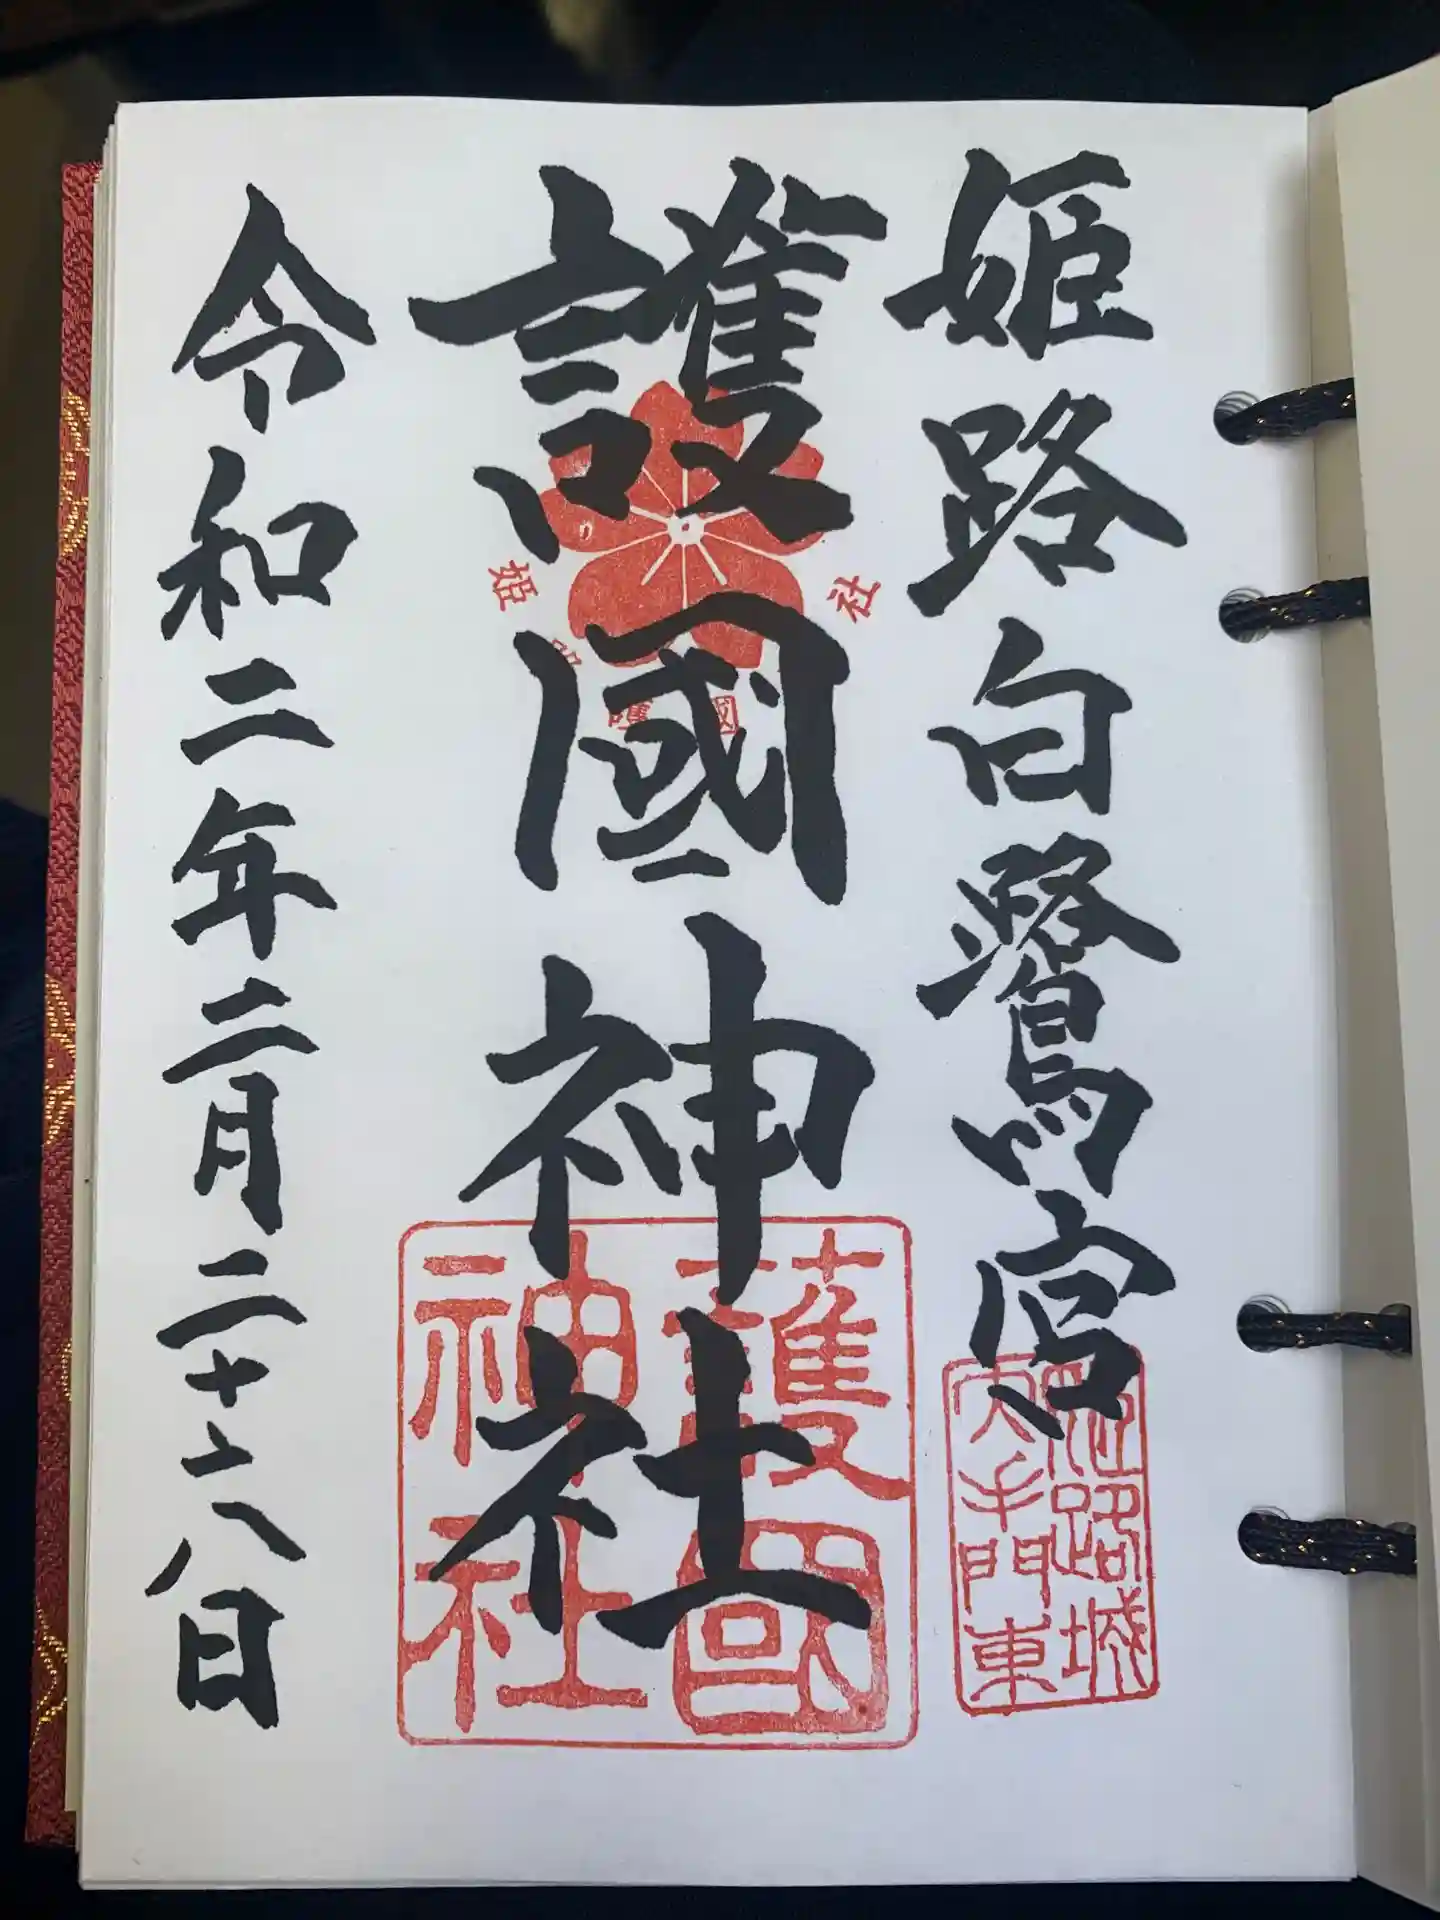 姫路白鷺宮
護國神社
令和二年二月二十八日
姫 社
護國
神社
姫路城
大手門東